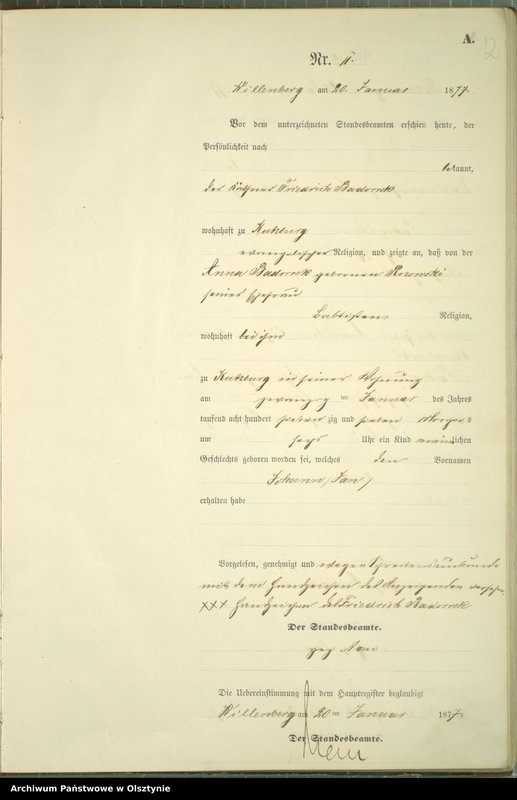 A.
12
Nr. 11.
Willenberg am 20. Januar 1877.
Vor dem unterzeichneten Standesbeamten erschien heute, der
Persönlichkeit nach
bekannt,
der Käthner Friedrich Badorrek
wohnhaft zu Kutzburg
evangelischer Religion, und zeigte an, daß von der
Anna Badorrek geborenen
seiner Ehefrau
Babtisten Religion,
wohnhaft bei ihm
zu Kutzburg in seiner Wohnung
am zwanzig ten Januar des Jahres
tausend acht hundert sieben zig und sieben Morgens
um sechs Uhr ein Kind männlichen
Geschlechts geboren worden sei, welches den Vornamen
Johann (Jan)
erhalten habe
Vorgelesen, genehmigt und wegen Schreibensunkunde
mit dem Handzeichen des Anzeigenden
XXX Handzeichen des Friedrich Badorrek
Der Standesbeamte.
gez
Die Uebereinstimmung mit dem Hauptregister beglaubigt
Willenberg am 20 ten Januar 1877.
Der Standesbeamte.
Archiwum Państwowe w Olsztynie